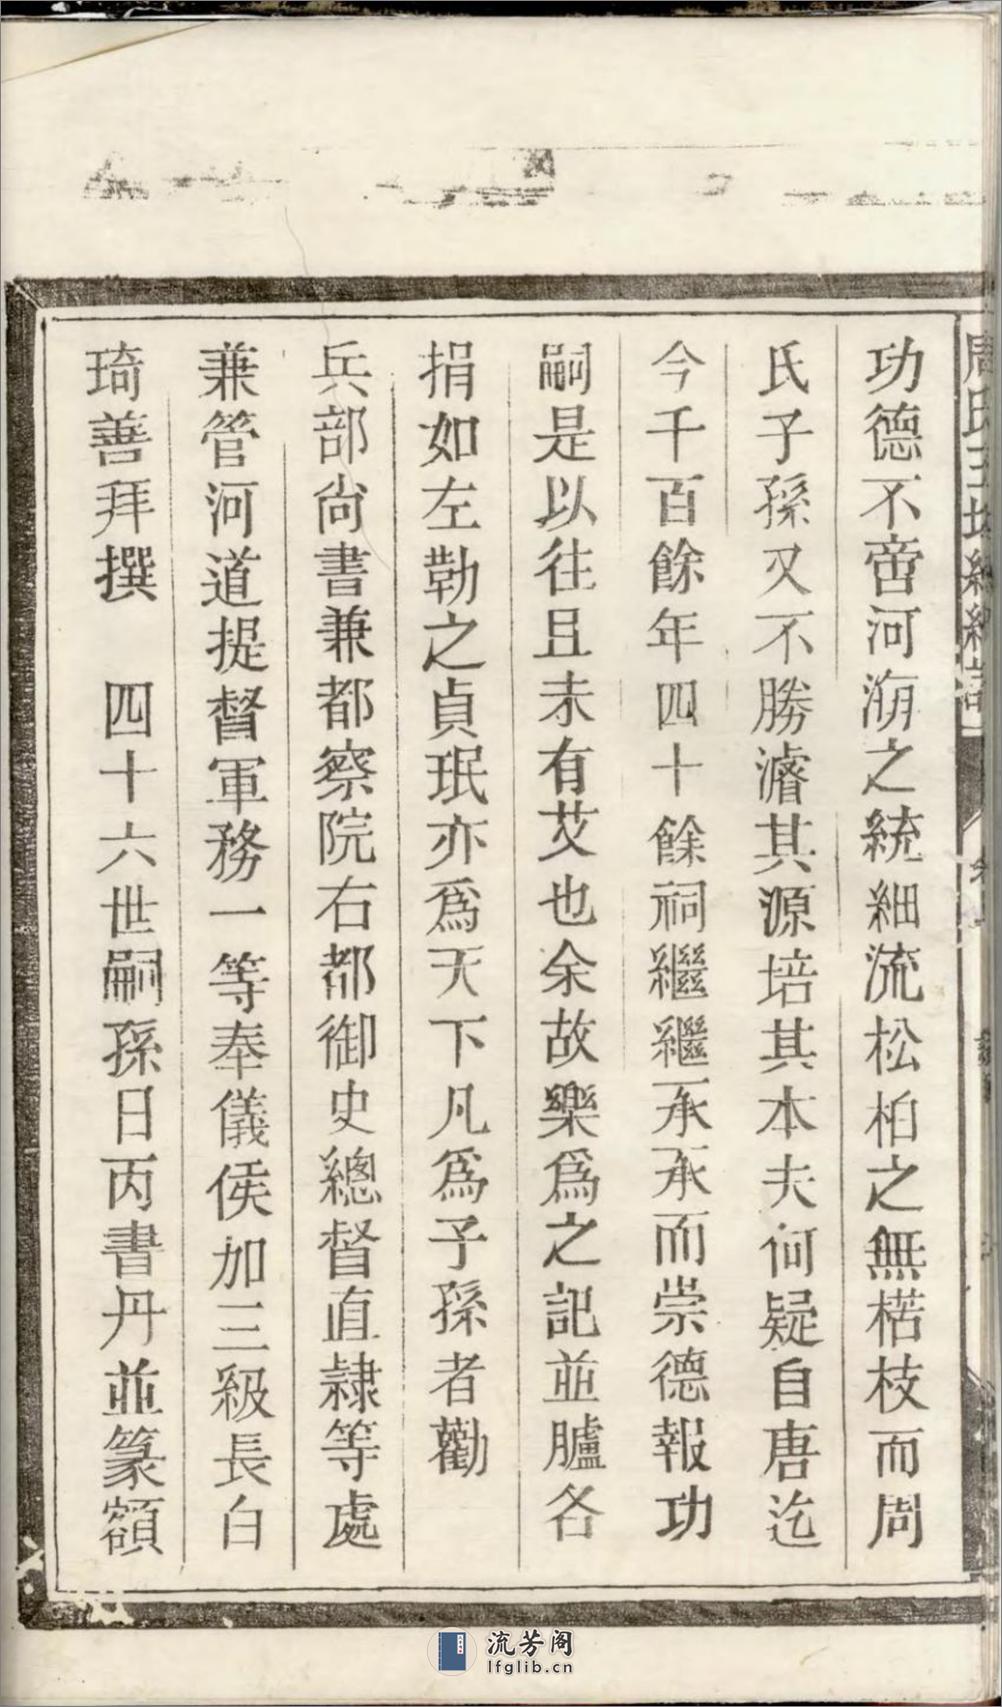 功德不啻河海之統細流松柏之無楛枝而周
氏子孫又不勝濬其源培其本夫何疑自唐迄
今千百餘年四十餘祠繼繼承承而崇德報功
嗣是以往且未有艾也余故樂為之記並臚各
捐如左勒之貞珉亦為天下凡為子孫者勸
兵部尚書兼都察院右都御史總督直隸等處
兼管河道提督軍務一等奉儀侯加三級長白
琦善拜撰　四十六世嗣孫日丙書丹並篆額
流芳阁
lfglib.cn